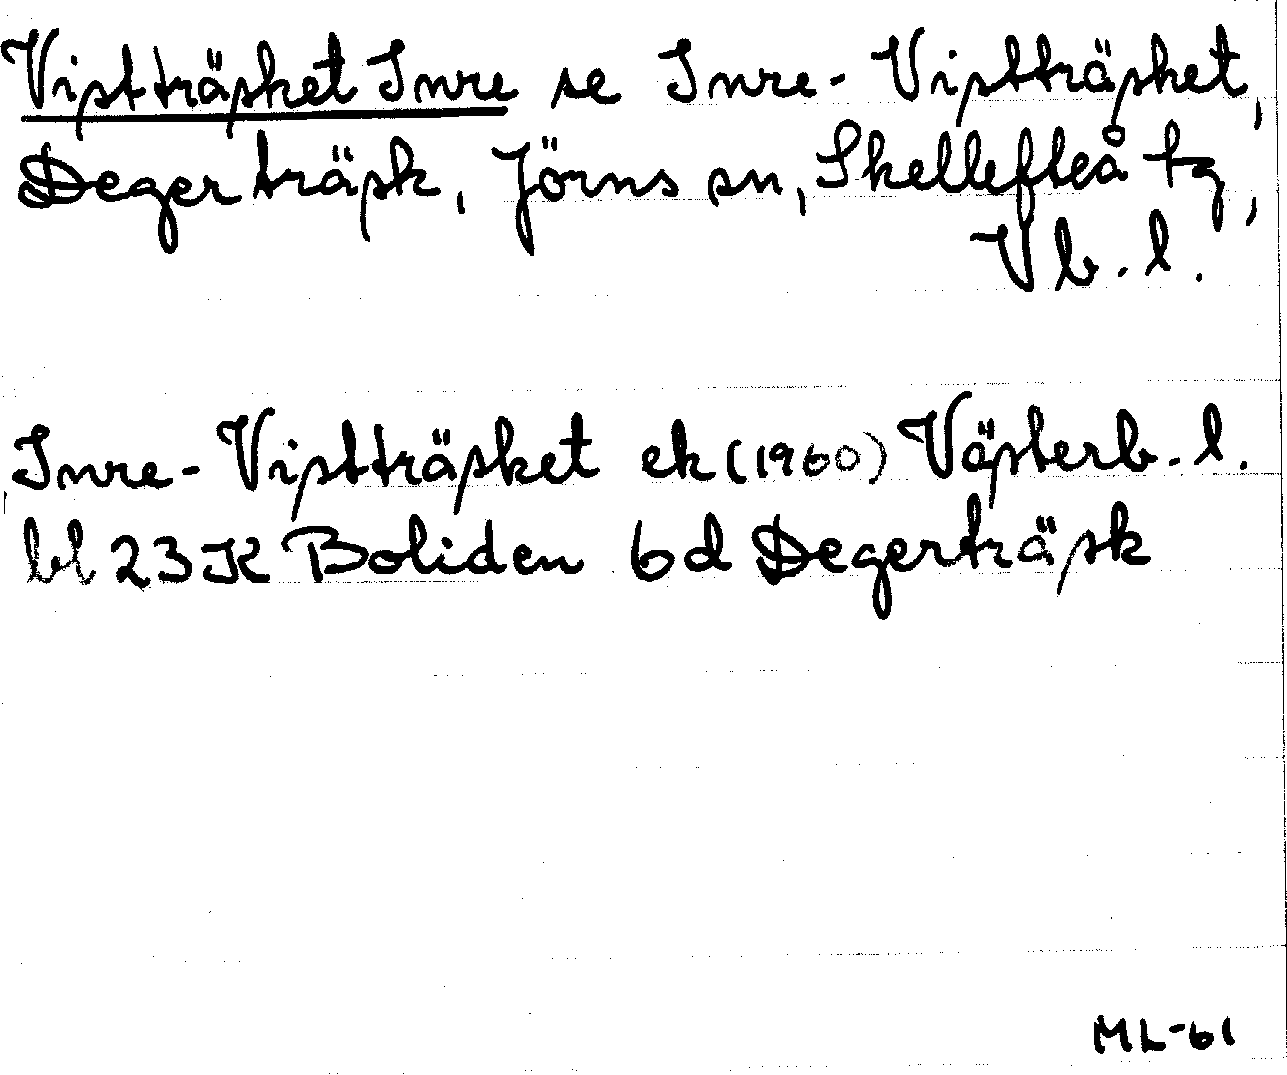 Vistträsket Inre se Inre-Vistträsket,
Degerträsk, Jörns sn, Skellefteå tg,
Vb.l.
Inre-Vistträsket ek (1960) Västerb.l.
bl 23K Boliden 6d Degerträsk
ML-61